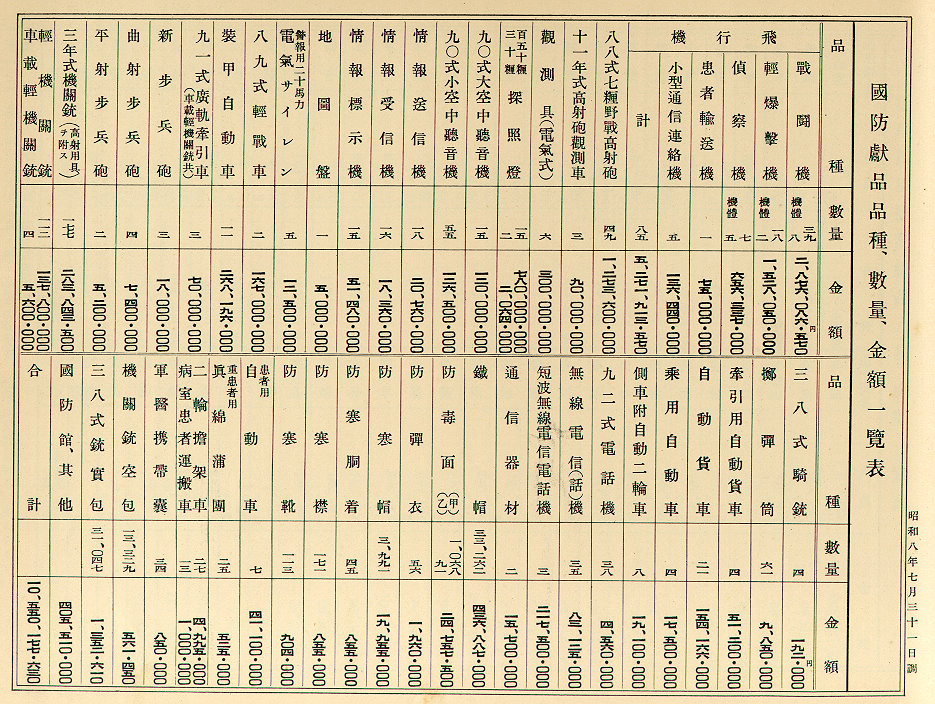 國防獻品品種、數量、金額一覽表
昭和八年七月三十一日調
品種 數量 金額
飛行機
戰鬪機 機體 三九 八 二、八七六、〇八六・五七〇円
輕爆擊機 機體 一八 二 一、五三八、〇五〇・〇〇〇
偵察機 機體 七 五
患者輸送機 一 七五、〇〇〇・〇〇〇
小型通信連絡機 五 一三六、四四〇・〇〇〇
計 八五 五、二七一、九一三・五七〇
八八式七糎野戰高射砲 四九
十一年式高射砲觀測車 三 九〇、〇〇〇・〇〇〇
觀測具(電氣式) 六 三〇〇、〇〇〇・〇〇〇
百五十糎 三十糎 探照燈 一五 二 七八〇、〇〇〇・〇〇〇 二、〇六四・〇〇〇
九〇式大空中聽音機 一五 三三〇、〇〇〇・〇〇〇
九〇式小空中聽音機 五五 一二六、五〇〇・〇〇〇
情報送信機 一八 二〇、七六〇・〇〇〇
情報受信機 一六 一八、三六〇・〇〇〇
情報標示機 一五 五一、四八〇・〇〇〇
地圖盤 一 五、〇〇〇・〇〇〇
警報用二十馬力電氣サイレン 五 一二、五〇〇・〇〇〇
八九式輕戰車 二 一六七、〇〇〇・〇〇〇
裝甲自動車 一一 二六八、一九六・〇〇〇
九一式廣軌牽引車(車載輕機關銃共) 三 七〇、〇〇〇・〇〇〇
新步兵砲 三 一八、〇〇〇・〇〇〇
曲射步兵砲 四 七、四〇〇・〇〇〇
平射步兵砲 二 五、二〇〇・〇〇〇
三年式機關銃(高射用具ヲ附ス) 一二七 二八三、八四三・五〇〇
輕機關銃 一一二 一三七、八〇〇・〇〇〇
車載輕機關銃 四 五、六〇〇・〇〇〇
品種 數量 金額
三八式騎銃 四 一九二・〇〇〇円
擲彈筒 六一 九、八五〇・〇〇〇
牽引用自動貨車 四 五一、二〇〇・〇〇〇
自動貨車 二一 一五四、一六六・〇〇〇
乘用自動車 四 一七、五〇〇・〇〇〇
側車附自動二輪車 八 一九、一〇〇・〇〇〇
九二式電話機 三八 四、五六〇・〇〇〇
無線電信(話)機 三五 八三、一二五・〇〇〇
短波無線電信電話機 三 二一七、五〇〇・〇〇〇
通信器材 二 一五、七〇〇・〇〇〇
鐵帽 三三、二六二 四四六、八八七・〇〇〇
防毒面(甲)(乙) 一、〇六八 九一 二四、七五七・五〇〇
防彈衣 五六 一、九六〇・〇〇〇
防寒帽 三、九九一 一九、九五五・〇〇〇
防寒胴着 四五 八五五・〇〇〇
防寒襟 一七一 八五五・〇〇〇
防寒靴 一一三 九〇四・〇〇〇
患者用自動車 七 四一、一〇〇・〇〇〇
重患者用眞綿蒲團 二五 五二五・〇〇〇
二輪擔架車 二七 四、九九五・〇〇〇
病室患者運搬車 一三 一、〇〇〇・〇〇〇
軍醫携帶囊 三四 八五〇・〇〇〇
機關銃空包 一三、三二九 五六一・四五〇
三八式銃實包 三一、〇四七 一、三五二・六一〇
國防館、其他 四〇五、五一〇・〇〇〇
合計 一〇、五五〇、一七七・六三〇